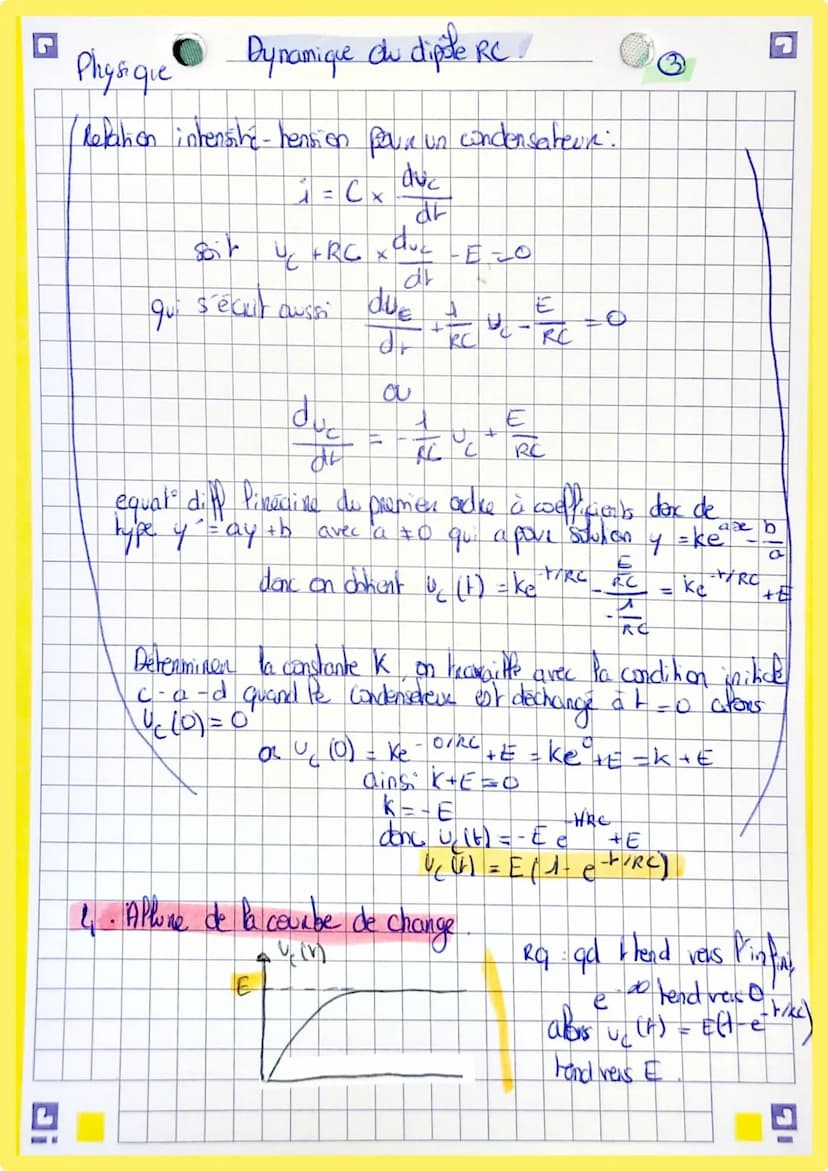 Physique
Dynamique du dipôle RC.
3
Relation intensité-tension pour un condensateur :
i = C x duc/dt
soit uc + RC x duc/dt - E = 0
qui s'écrit aussi duE/dt + 1/RC uc - E/RC = 0
ou
duc/dt = - 1/RC uc + E/RC
equat° diff linéaire du premier ordre à coefficients donc de
type y' = ay + b avec a ≠ 0 qui a pour solution y = ke^ax - b/a
donc on obtient uc(t) = ke^-t/RC - (E/RC)/(-1/RC) = ke^-t/RC + E
Déterminer la constante K, on travaille avec la condition initiale
c-a-d quand le condensateur est déchargé à t = 0 alors
uc(0) = 0
or uc(0) = ke^-0/RC + E = ke^0 + E = k + E
ainsi k + E = 0
k = - E
donc uc(t) = - E e^-t/RC + E
uc(t) = E(1 - e^-t/RC)
4. Allure de la courbe de charge
uc(t)
E
Rq : qd t tend vers l'infini,
e^-∞ tend vers 0
alors uc(t) = E(1 - e^-t/RC)
tend vers E.